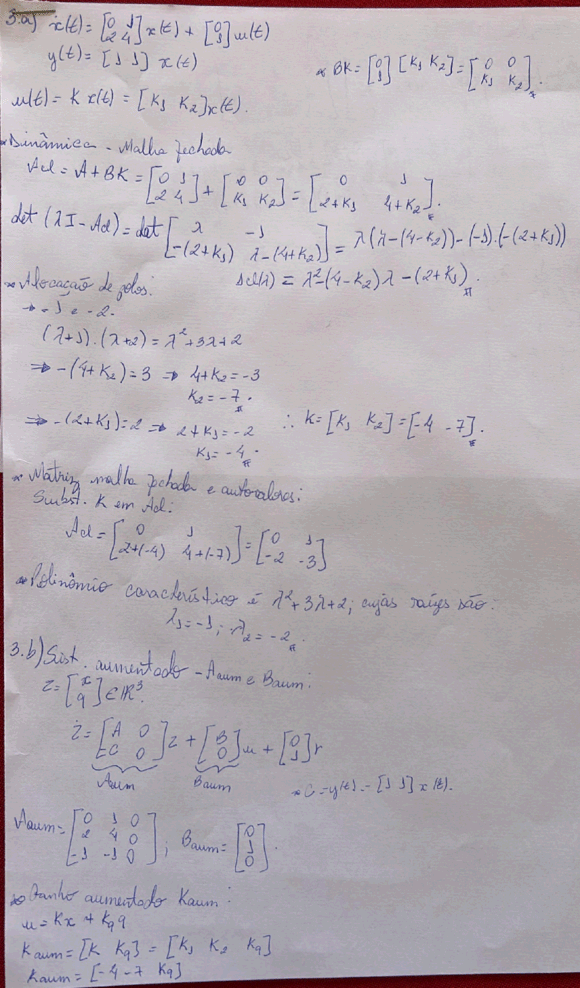 3.a) ẋ(t) = [0 1; 2 4] x(t) + [0; 1] u(t)
y(t) = [1 1] x(t)
* BK = [0; 1] [K1 K2] = [0 0; K1 K2].
u(t) = K x(t) = [K1 K2] x(t).
* Dinâmica - Malha fechada
Acl = A + BK = [0 1; 2 4] + [0 0; K1 K2] = [0 1; 2+K1 4+K2].
det (λI - Acl) = det [λ -1; -(2+K1) λ-(4+K2)] = λ(λ-(4-K2)) - (-1).(-(2+K1))
Δcl(λ) = λ² - (4-K2)λ - (2+K1).
* Alocação de polos:
→ -1 e -2.
(λ+1).(λ+2) = λ² + 3λ + 2
⇒ -(4+K2) = 3 ⇒ 4+K2 = -3
K2 = -7.
⇒ -(2+K1) = 2 ⇒ 2+K1 = -2
K1 = -4.
∴ K = [K1 K2] = [-4 -7].
* Matriz malha fechada e autovalores:
Subst. K em Acl:
Acl = [0 1; 2+(-4) 4+(-7)] = [0 1; -2 -3]
* Polinômio característico é λ²+3λ+2; cujas raízes são:
λ1 = -1; λ2 = -2.
3.b) Sist. aumentado - Aaum e Baum:
z = [x; q] ∈ ℝ³.
ż = [A 0; -C 0] z + [B; 0] u + [0; 1] r
Aaum Baum
* C = y(t) = [1 1] x(t).
Aaum = [0 1 0; 2 4 0; -1 -1 0]; Baum = [0; 1; 0].
* Ganho aumentado Kaum:
u = Kx + Kq q
Kaum = [K Kq] = [K1 K2 Kq]
Kaum = [-4 -7 Kq]